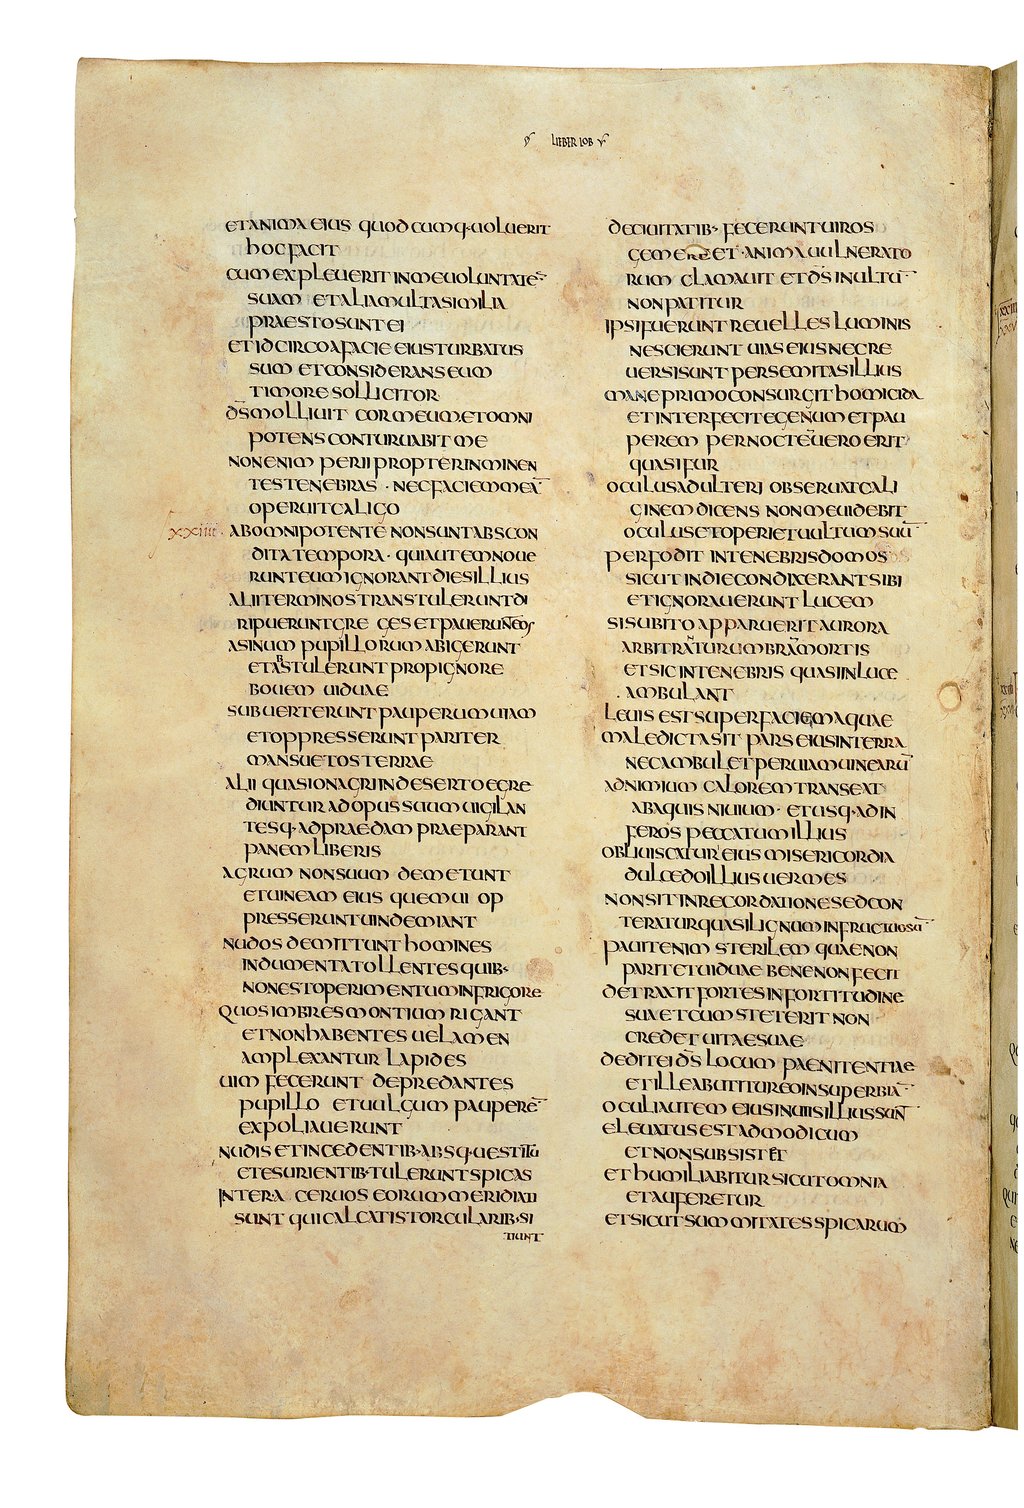 LIBER IOB
ET ANIMA EIUS QUODCUMQ· UOLUERIT
HOC FACIT
CUM EXPLEUERIT IN ME UOLUNTATĒ
SUAM ET ALIA MULTA SIMILIA
PRAESTO SUNT EI
ET IDCIRCO A FACIE EIUS TURBATUS
SUM ET CONSIDERANS EUM
TIMORE SOLLICITOR
D̄S MOLLIUIT COR MEUM ET OMNI
POTENS CONTURUABIT ME
NON ENIM PERII PROPTER INMINEN
TES TENEBRAS · NEC FACIEM MEĀ
OPERUIT CALIGO
XXIIII · AB OMNIPOTENTE NON SUNT ABSCON
DITA TEMPORA · QUI AUTEM NOUE
RUNT EUM IGNORANT DIES ILLIUS
ALII TERMINOS TRANSTULERUNT DI
RIPUERUNT GREGES ET PAUERUN̄ EOS
ASINUM PUPILLORUM ABIGERUNT
ET ABSTULERUNT PRO PIGNORE
BOUEM UIDUAE
SUBUERTERUNT PAUPERUM UIAM
ET OPPRESSERUNT PARITER
MANSUETOS TERRAE
ALII QUASI ONAGRI IN DESERTO EGRE
DIUNTUR AD OPUS SUUM UIGILAN
TESQ· AD PRAEDAM PRAEPARANT
PANEM LIBERIS
AGRUM NON SUUM DEMETUNT
ET UINEAM EIUS QUEM UI OP
PRESSERUNT UINDEMIANT
NUDOS DEMITTUNT HOMINES
INDUMENTA TOLLENTES QUIB·
NON EST OPERIMENTUM IN FRIGORE
QUOS IMBRES MONTIUM RIGANT
ET NON HABENTES UELAMEN
AMPLEXANTUR LAPIDES
UIM FECERUNT DEPREDANTES
PUPILLO ET UULGUM PAUPERĒ
EXPOLIAUERUNT
NUDIS ET INCEDENTIB· ABSQ· UESTITŪ
ET ESURIENTIB· TULERUNT SPICAS
INTER A CERUOS EORUM MERIDIATI
SUNT QUI CALCATIS TORCULARIB· SI
TIUNT
DE CIUITATIB· FECERUNT UIROS
GEMERE ET · ANIMA UULNERATO
RUM CLAMAUIT ET D̄S INULTŪ
NON PATITUR
IPSI FUERUNT REUELLES LUMINIS
NESCIERUNT UIAS EIUS NEC RE
UERSI SUNT PER SEMITAS ILLIUS
MANE PRIMO CONSURGIT HOMICIDA
ET INTERFECIT EGENUM ET PAU
PEREM PER NOCTĒ UERO ERIT
QUASI FUR
OCULUS ADULTERI OBSERUAT CALI
GINEM DICENS NON ME UIDEBIT
OCULUS ET OPERIET UULTUM SUŪ
PERFODIT IN TENEBRIS DOMOS
SICUT IN DIE CONDIXERANT SIBI
ET IGNORAUERUNT LUCEM
SI SUBITO APPARUERIT AURORA
ARBITRANTUR UMBRĀ MORTIS
ET SIC IN TENEBRIS QUASI IN LUCE
AMBULANT
LEUIS EST SUPER FACIEM AQUAE
MALEDICTA SIT PARS EIUS IN TERRA
NEC AMBULET PER UIAM UINEARŪ
AD NIMIUM CALOREM TRANSEAT
AB AQUIS NIUIUM · ET USQ· AD IN
FEROS PECCATUM ILLIUS
OBLIUISCATUR EIUS MISERICORDIA
DULCEDO ILLIUS UERMES
NON SIT IN RECORDATIONE SED CON
TERATUR QUASI LIGNUM INFRUCTUOSŪ
PAUIT ENIM STERILEM QUAE NON
PARIT ET UIDUAE BENE NON FECIT
DETRAXIT FORTES IN FORTITUDINE
SUA ET CUM STETERIT NON
CREDET UITAE SUAE
DEDIT EI D̄S LOCUM PAENITENTIAE
ET ILLE ABUTITUR EO IN SUPERBIĀ
OCULI AUTEM EIUS IN UIIS ILLIUS SUN̄
ELEUATUS EST AD MODICUM
ET NON SUBSISTET
ET HUMILIABITUR SICUT OMNIA
ET AUFERETUR
ET SICUT SUMMITATES SPICARUM